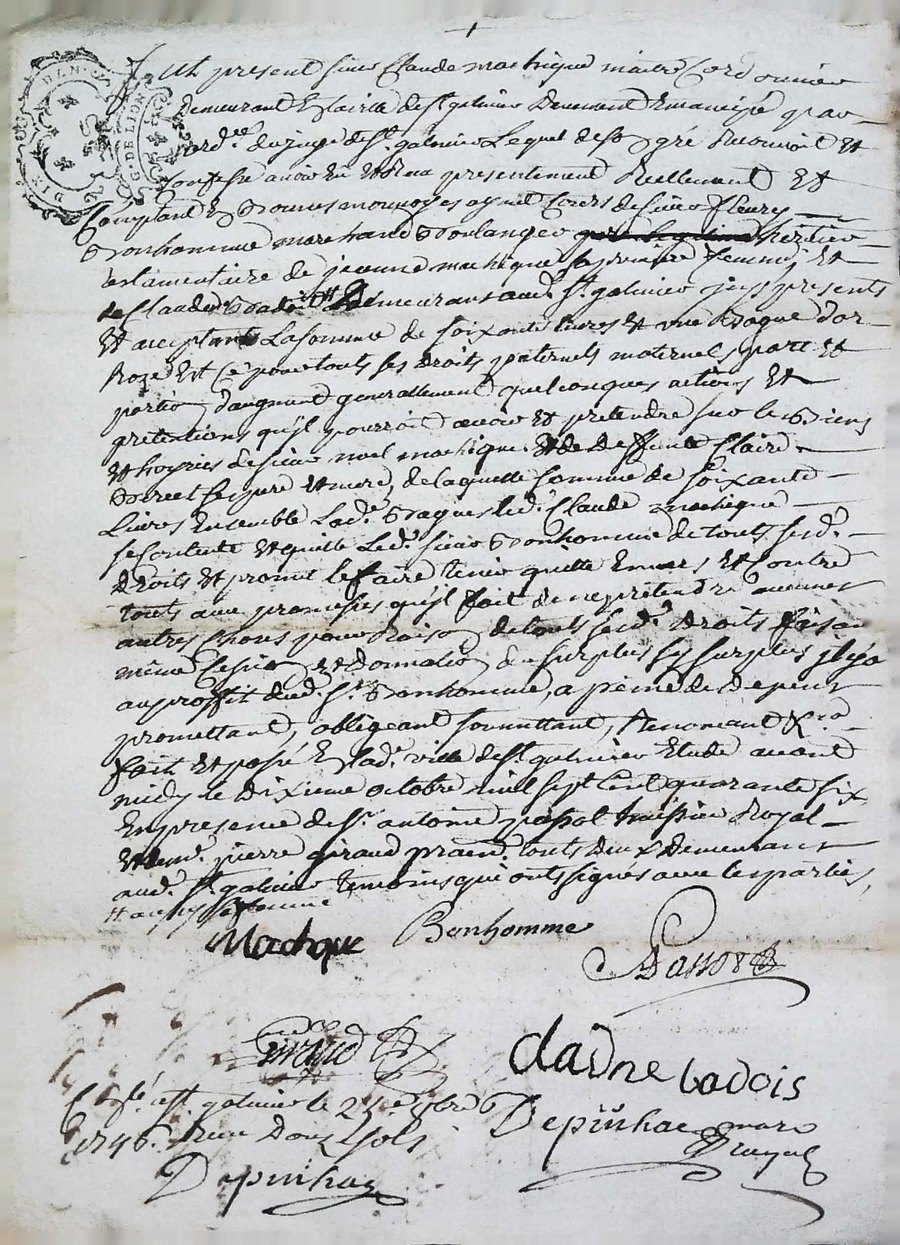 Fut present sieur Claude machique maitre Cordonnier
demeurant En la ville de st galmier Deuement Emancipé par
ord.ce du juge de st galmier Lequel de son gré Reconnoit Et
Confesse avoir Eu Et Receu presentement Reellement Et
Comptant En bonnes monnoyes ayant Cours de sieur fleury
Bonhomme marchand Boulanger heritier
testamentaire de jeanne machique sa premiere femme, Et
de Claudine demeurans aud. st galmier jcy presents
Et acceptants La somme de soixante livres Et une Bague d'or
Roze Et Ce pour touts ses droits paternels maternels, part Et
portion, d'augment generallement quelconques actions Et
pretentions qu'jl pourroit avoir Et pretendre sur les Biens
Et hoyries de sieur noel machique Et de Deffunte Claire
ses pere Et mere, de laquelle somme de soixante
Livres Ensemble Lad. Bague led. Claude machique
se Contente Et quitte Led. sieur Bonhomme de touts sesd.
droits Et promet le faire tenir quitte Envers Et Contre
touts avec promesses qu'jl fait de ne pretendre aucunes
autres Choses pour Raison de touts sesd. droits faisant
même Cession Et donnation du surplus sy surplus jl y a
au proffit dud. sr Bonhomme, a peine de Depens
promettant, obligeant, soumettant, Renoncant &ra
fait Et passé En lad. ville de st galmier Etude avant
midy le Dixieme octobre mill sept Cent quarante six
En presence de sr antoine passot huissier Royal
Et pierre giraud touts Deux Demeurant
aud. st galmier temoins qui ont signés avec les parties,
femme
Machque Bonhomme
Passot
Giraud
Claudne badois
C.lé a st galmier le 21e 8bre
1746. Reçu Douze sols
Depinhac
Depinhac
Royal
G. DE LION
DIX DEN.